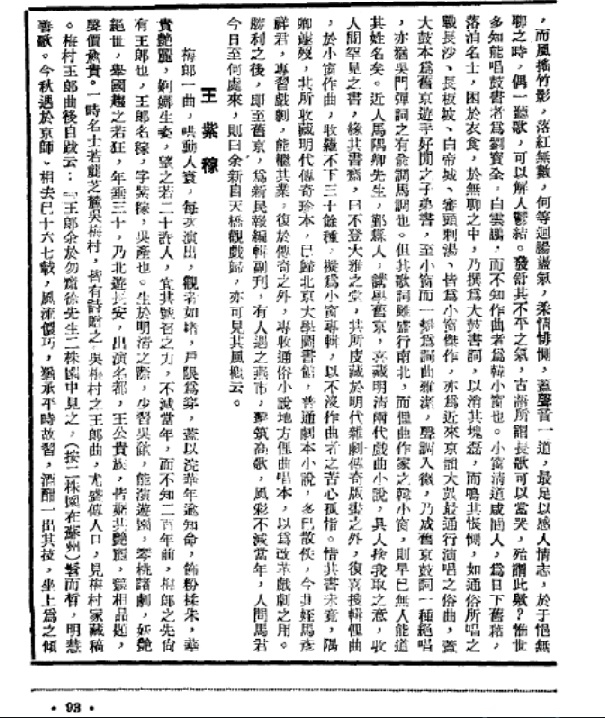 ，而風搖竹影，落紅無數，何等迴腸盪氣，柔情悱惻，蓋聲音一道，最足以感人情志，於于悒無
聊之時，偶一聽歌，可以解人鬱結。發舒其不平之氣，古語所謂長歌可以當哭，殆謂此歟？惟世
多知能唱鼓書者爲劉寶全，白雲鵬，而不知作曲者爲韓小窗也。小窗清道咸間人，爲日下舊籍，
落泊名士，困於衣食，於無聊之中，乃撰爲大鼓書詞，以澆其塊磊，而鳴其悵惘，如通俗所唱之
戰長沙、長板坡、白帝城、審頭刺湯、皆爲小窗傑作，亦爲近來京韻大鼓最通行演唱之俗曲，蓋
大鼓本爲舊京遊手好閒之子弟書，至小窗而一變爲詞曲雅潔，聲調入微，乃成舊京鼓詞一種絕唱
，亦猶吳門彈詞之有俞調馬調也。但其歌詞雖盛行南北，而俚曲作家之韓小窗，則早已無人能道
其姓名矣。近人馬隅卿先生，鄞縣人，講學舊京，喜藏明清兩代戲曲小說，具人捨我取之意，收
人間罕見之書，緣其書齋，曰不登大雅之堂，其所庋藏於明代雜劇傳奇版畫之外，復喜搜輯俚曲
，於小窗作曲，收羅不下三十餘種，擬爲小窗專輯，以不沒作曲者之苦心孤詣。惜其書未竟，隅
卿遽歿，其所收藏明代傳奇珍本，已歸北京大學圖書館，普通劇本小說，多已散佚，今其姪馬彥
祥君，專習戲劇，能繼其業，復於傳奇之外，專收通俗小說地方俚曲唱本，以爲改革戲劇之用。
勝利之後，即至舊京，爲新民報編輯副刊，有人遇之燕市，擊筑高歌，風彩不減當年，人問馬君
今日至何處來，則曰余新自天橋觀戲歸，亦可見其風概云。
王紫稼
梅郎一曲，哄動人寰，每次演出，觀者如堵，戶限爲穿，蓋以淀華年逾知命，飾粉揉朱，華
貴艷麗，婀娜生姿，望之若二十許人，宜其號召之力，不減當年，而不知二百年前，梅郎之先尙
有王郎也，王郎名稼，字紫稼，吳產也。生於明清之際，少習吳歈，能演遊園，琴挑諸劇，妖艷
絕世，舉國趨之若狂，年垂三十，乃北遊長安，出演名都，王公貴族，皆驚其艷麗，競相品題，
聲價愈貴。一時名士若龔芝麓吳梅村，皆有詩贈之。吳梅村之王郎曲，尤盛傳人口，見梅村家藏稿
。梅村王郎曲後自跋云：「王郎余於勿齋徐先生二株園中見之，（按二株園在蘇州）髫而晳，明慧
善歌。今秋遇於京師、相去已十六七載，風流儇巧，猶承平時故習，酒酣一出其技，坐上爲之傾
· 93 ·